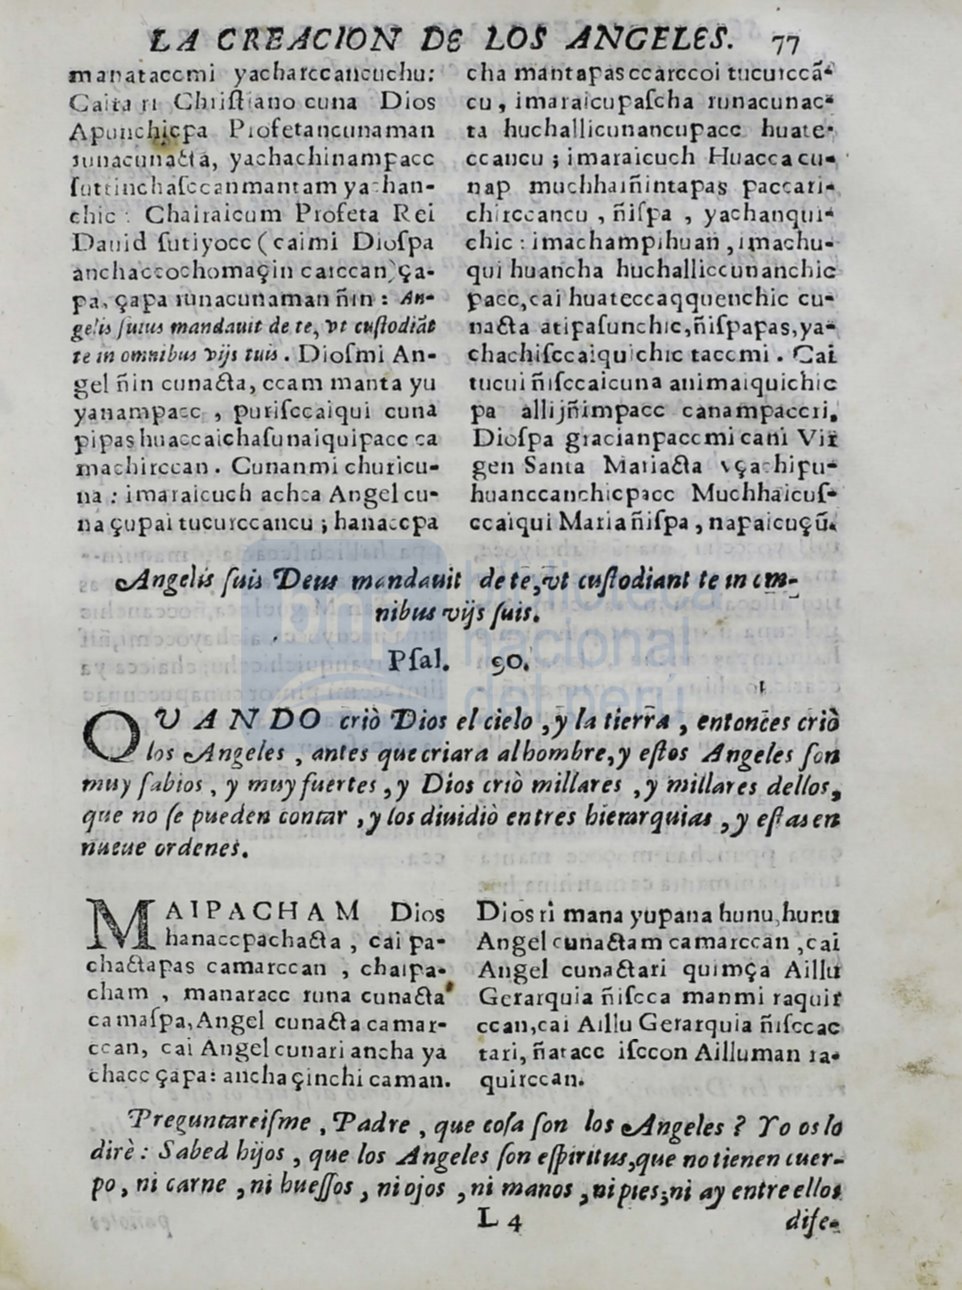 LA CREACION DE LOS ANGELES. 77
manataccmi yacharccancuchu:
Caita ri Chriſtiano cuna Dios
Apunchicpa Profetancunaman
runacunacta, yachachinampacc
ſuttinchaſccanmantam yachan-
chic: Chairaicum Profeta Rei
Dauid ſutiyocc (caimi Dioſpa
anchaccochomaçin carccan) ça-
pa, çapa runacunaman ñin: An-
gelis ſuius mandauit de te, vt cuſtodiāt
te in omnibus vijs tuis. Dioſmi An-
gel ñin cunacta, ccam manta yu
yanampacc, puriſccaiqui cuna
pipas huaccaichaſunaiquipacc ca
machirccan. Cunanmi churicu-
na: imaraicuch achca Angel cu-
na çupai tucurccancu; hanaccpa
cha mantapas ccarccoi tucurccā-
cu, imaraicupaſcha runacunac-
ta huchallicunancupacc huate-
ccancu; imaraicuch Huacca cu-
nap muchhaiñintapas paccari-
chirccancu, ñiſpa, yachanqui-
chic: imachampihuan, imachu-
qui huancha huchalliccunanchic
pacc, cai huateccaqquenchic cu-
nacta atipaſunchic, ñiſpapas, ya-
chachiſccaiquichic taccmi. Cai
tucui ñiſccaicuna animaiquichic
pa allijñimpacc canampaccri,
Dioſpa gracianpaccmi cani Vir
gen Santa Mariacta vçachipu-
huanccanchicpacc Muchhaicuſ-
ccaiqui Maria ñiſpa, napaicuçū.
Angelis ſuis Deus mandauit de te, vt cuſtodiant te in om-
nibus vijs ſuis.
Pſal. 90.
QVANDO criò Dios el cielo, y la tierra, entonces criò
los Angeles, antes que criara al hombre, y eſtos Angeles ſon
muy ſabios, y muy fuertes, y Dios criò millares, y millares dellos,
que no ſe pueden contar, y los diuidiò en tres hierarquias, y eſtas en
nueue ordenes.
MAIPACHAM Dios
hanaccpachacta, cai pa-
chactapas camarccan, chaipa-
cham, manaracc runa cunacta
camaſpa, Angel cunacta camar-
ccan, cai Angel cunari ancha ya
chacc çapa: ancha çinchi caman.
Dios ri mana yupana hunu, hunu
Angel cunactam camarccan, cai
Angel cunactari quimça Aillu
Gerarquia ñiſcca manmi raquir
ccan, cai Aillu Gerarquia ñiſccac
tari, ñatacc iſccon Ailluman ra-
quirccan.
Preguntareiſme, Padre, que coſa ſon los Angeles? Yo os lo
dirè: Sabed hijos, que los Angeles ſon eſpiritus, que no tienen cuer-
po, ni carne, ni hueſſos, ni ojos, ni manos, ni pies; ni ay entre ellos
L 4 dife-
biblioteca
nacional
del perú